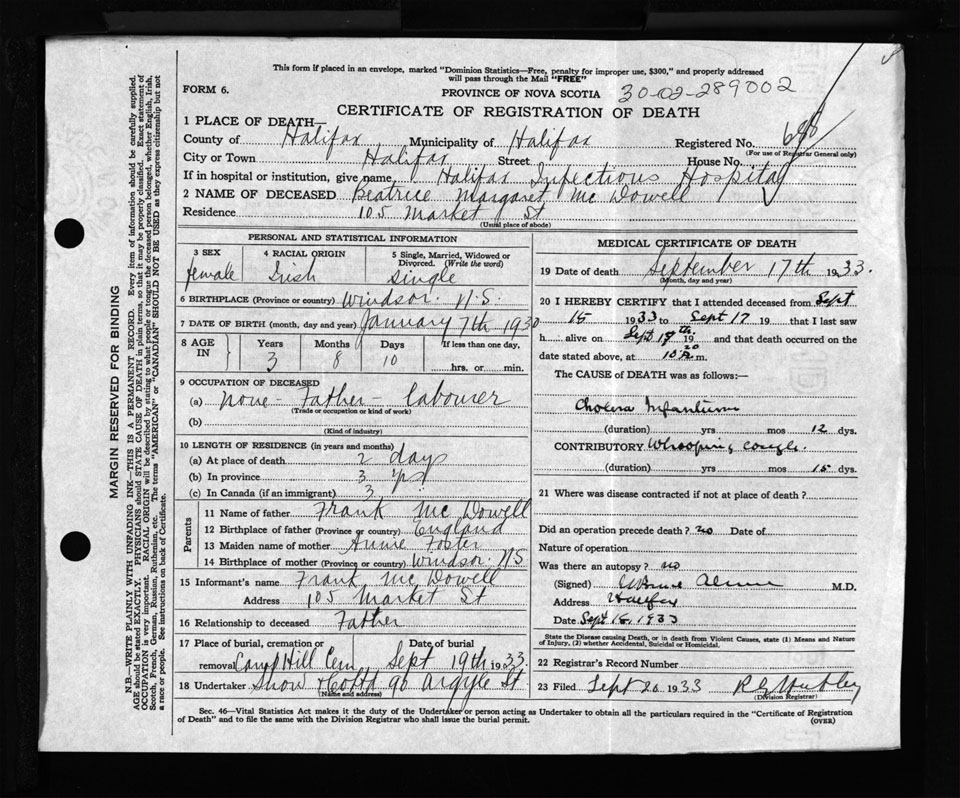 This form if placed in an envelope, marked "Dominion Statistics—Free, penalty for improper use, $300," and properly addressed
will pass through the Mail "FREE"
FORM 6.
PROVINCE OF NOVA SCOTIA
30-02-289002
CERTIFICATE OF REGISTRATION OF DEATH
1 PLACE OF DEATH—
County of Halifax Municipality of Halifax Registered No. 698
(For use of Registrar General only)
City or Town Halifax Street House No.
If in hospital or institution, give name, Halifax Infectious Hospital
2 NAME OF DECEASED Beatrice Margaret Mc Dowell
Residence 105 Market St
(Usual place of abode)
PERSONAL AND STATISTICAL INFORMATION
3 SEX
female
4 RACIAL ORIGIN
Irish
5 Single, Married, Widowed or
Divorced. (Write the word)
Single
6 BIRTHPLACE (Province or country) Windsor. N.S.
7 DATE OF BIRTH (month, day and year) January 7th 1930
8 AGE IN
Years Months Days If less than one day,
3 8 10
hrs. or min.
9 OCCUPATION OF DECEASED
(a) None - Father - labourer
(Trade or occupation or kind of work)
(b)
(Kind of industry)
10 LENGTH OF RESIDENCE (in years and months)
(a) At place of death 2 days
(b) In province 3 yrs
(c) In Canada (if an immigrant) 3
Parents
11 Name of father Frank Mc Dowell
12 Birthplace of father (Province or country) England
13 Maiden name of mother Annie Foster
14 Birthplace of mother (Province or country) Windsor NS
15 Informant's name Frank Mc Dowell
Address 105 Market St
16 Relationship to deceased Father
17 Place of burial, cremation or Date of burial
removal Camp Hill Cem Sept 19th 1933.
18 Undertaker Snow & Co Ltd 90 Argyle St
(Name and address)
MEDICAL CERTIFICATE OF DEATH
19 Date of death September 17th 1933.
(Month, day and year)
20 I HEREBY CERTIFY that I attended deceased from Sept
15 1933 to Sept 17 19 that I last saw
h alive on Sept 17th 19 and that death occurred on the
date stated above, at 10 20 m.
The CAUSE of DEATH was as follows:—
Cholera Infantum
(duration) yrs mos 12 dys.
CONTRIBUTORY Whooping cough.
(duration) yrs mos 15 dys.
21 Where was disease contracted if not at place of death?
Did an operation precede death? no Date of
Nature of operation
Was there an autopsy? no
(Signed) M.D.
Address Halifax
Date Sept 18, 1933
State the Disease causing Death, or in death from Violent Causes, state (1) Means and Nature
of Injury, (2) whether Accidental, Suicidal or Homicidal.
22 Registrar's Record Number
23 Filed Sept 20 1933
(Division Registrar)
Sec. 46—Vital Statistics Act makes it the duty of the Undertaker or person acting as Undertaker to obtain all the particulars required in the "Certificate of Registration
of Death" and to file the same with the Division Registrar who shall issue the burial permit.
(OVER)
MARGIN RESERVED FOR BINDING
N.B.—WRITE PLAINLY WITH UNFADING INK—THIS IS A PERMANENT RECORD. Every item of information should be carefully supplied.
AGE should be stated EXACTLY. PHYSICIANS should STATE CAUSE OF DEATH in plain terms, so that it may be properly classified. Exact statement of
OCCUPATION is very important. RACIAL ORIGIN will be described by stating to what people or tongue the deceased person belonged, whether English, Irish,
Scotch, French, German, Russian, Ruthenian, etc. The terms "AMERICAN" or "CANADIAN" SHOULD NOT BE USED as they express citizenship but not
a race or people. See instructions on back of Certificate.